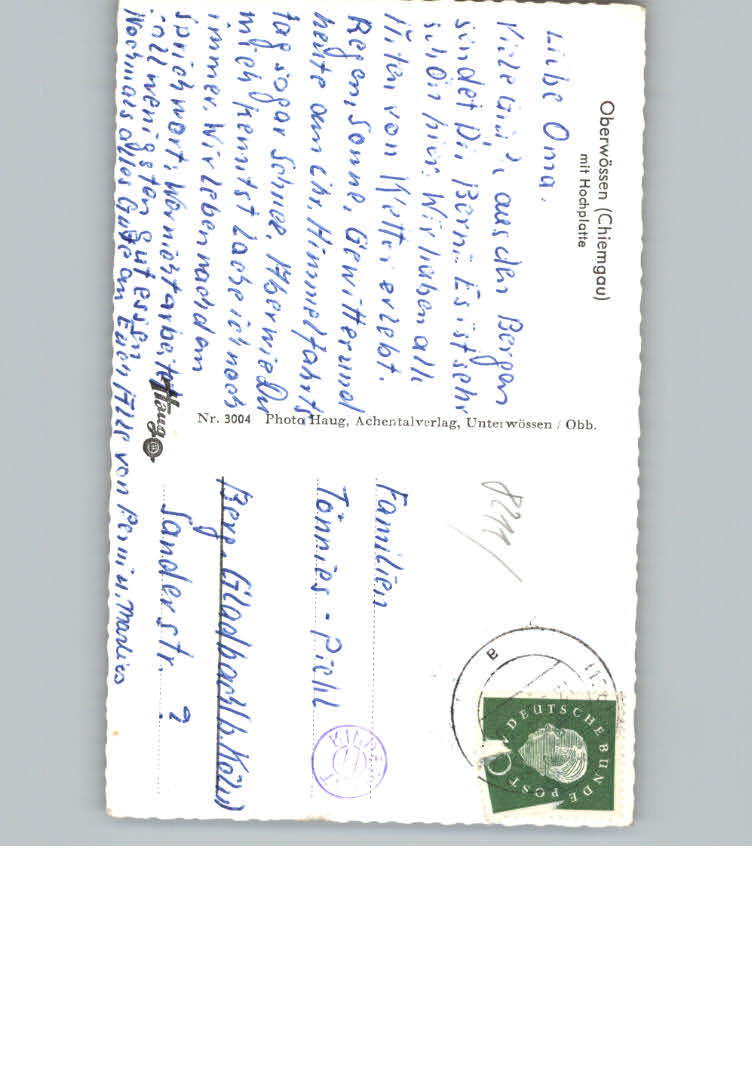 Oberwössen (Chiemgau)
mit Hochplatte
Liebe Oma.
Viele aus den Bergen
sendet Dir Berni. Es ist sehr
schön hier. Wir haben alle
Arten von Wetter erlebt.
Regen, Sonne, Gewitter und
heute am Chr. Himmelfahrts
tag sogar Schnee. Aber wie Du
mich kennst lache ich noch
immer. Wir leben nach dem
Sprichwort: Wer nicht arbeitet
soll wenigsten gut essen
Nochmals alles Gute an Euch Alle von Berni u. Marlies
Haug
Nr. 3004 Photo Haug, Achentalverlag, Unterwössen / Obb.
8211
Familien
Tönnies - Piehl
Berg. Gladbach (b. Köln)
Sanderstr. ?
DEUTSCHE BUNDESPOST